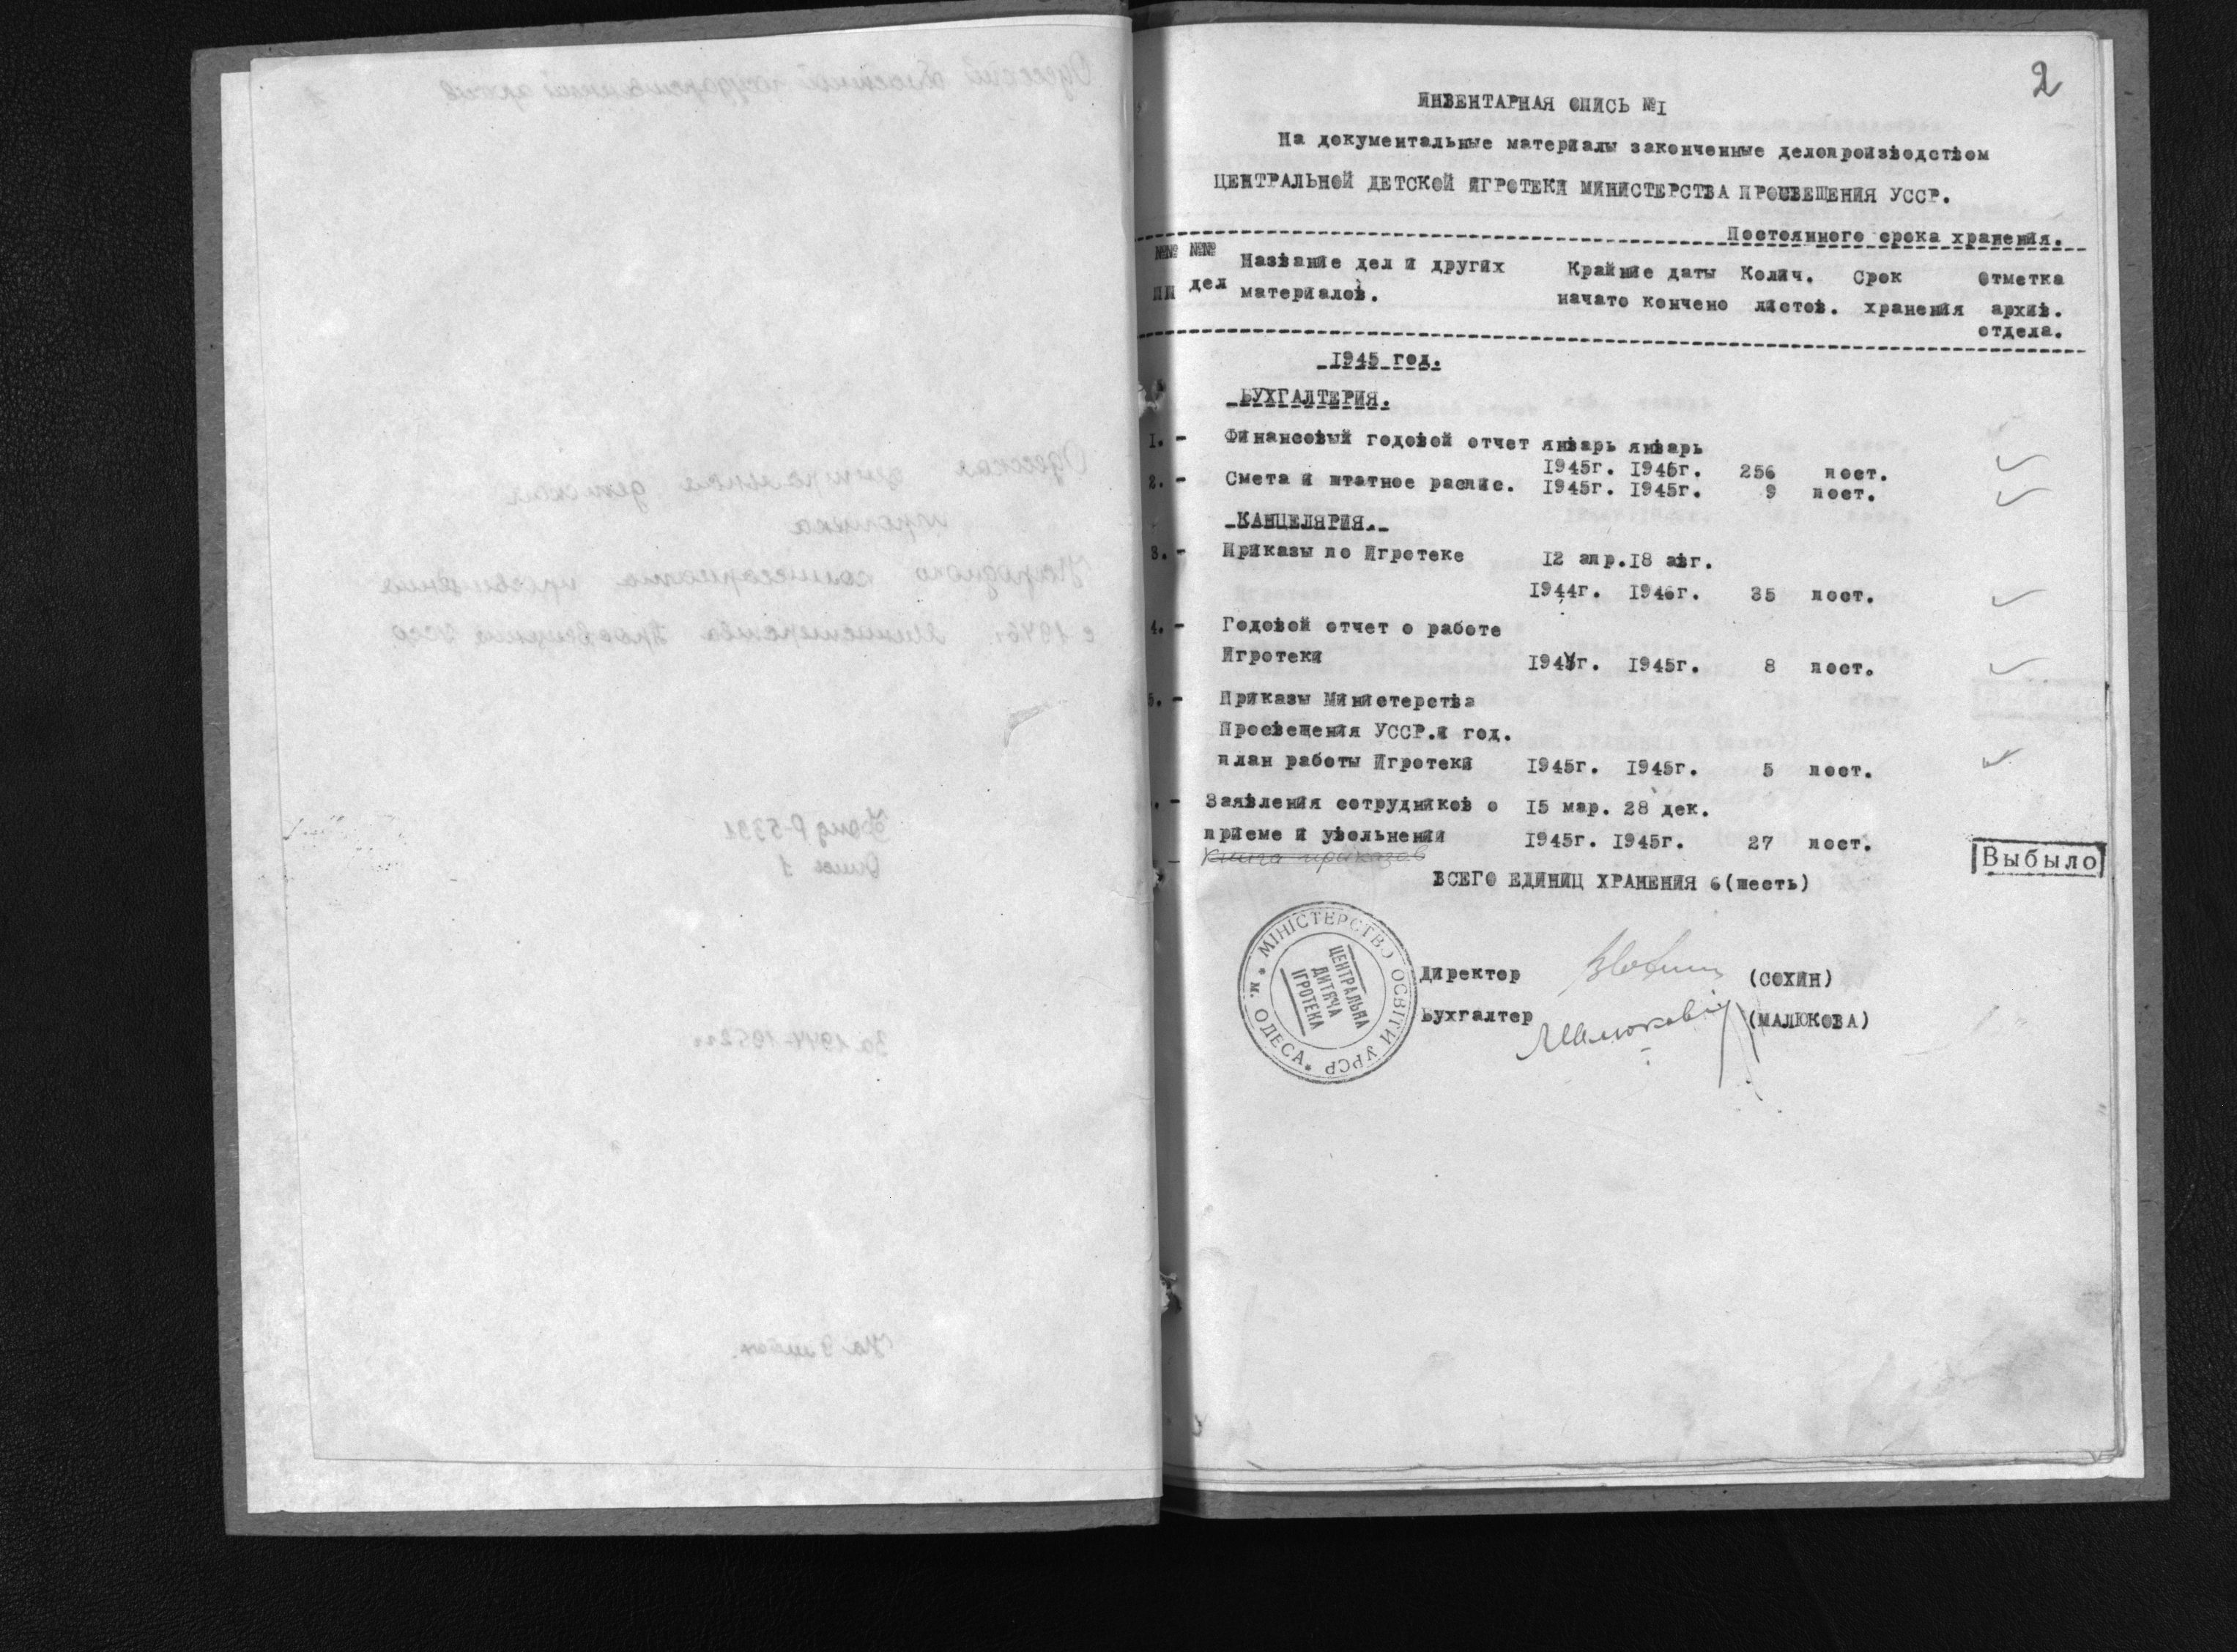 2
ИНВЕНТАРНАЯ ОПИСЬ №I
На документальные материалы законченные делопроизводством
ЦЕНТРАЛЬНОЙ ДЕТСКОЙ ИГРОТЕКИ МИНИСТЕРСТВА ПРОСВЕЩЕНИЯ УССР.
Постоянного срока хранения.
№№ №№ Название дел и других Крайние даты Колич. Срок Отметка
пп дел материалов. начато кончено листов. хранения архив.
отдела.
1945 год.
БУХГАЛТЕРИЯ.
I. - Финансовый годовой отчет январь январь
1945г. 1946г. 256 пост.
2. - Смета и штатное распис. 1945г. 1945г. 9 пост.
КАНЦЕЛЯРИЯ.
3. - Приказы по Игротеке 12 апр. 18 авг.
1944г. 1946г. 35 пост.
4. - Годовой отчет о работе
Игротеки 1945г. 1945г. 8 пост.
5. - Приказы Министерства
Просвещения УССР.и год.
план работы Игротеки 1945г. 1945г. 5 пост.
. - Заявления сотрудников о 15 мар. 28 дек.
приеме и увольнении 1945г. 1945г. 27 пост.
Книга приказов
Выбыло
ВСЕГО ЕДИНИЦ ХРАНЕНИЯ 6 (шесть)
МІНІСТЕРСТВО ОСВІТИ УРСР * м. ОДЕСА *
ЦЕНТРАЛЬНА
ДИТЯЧА
ІГРОТЕКА
Директор (СОХИН)
Бухгалтер (МАЛЮКОВА)